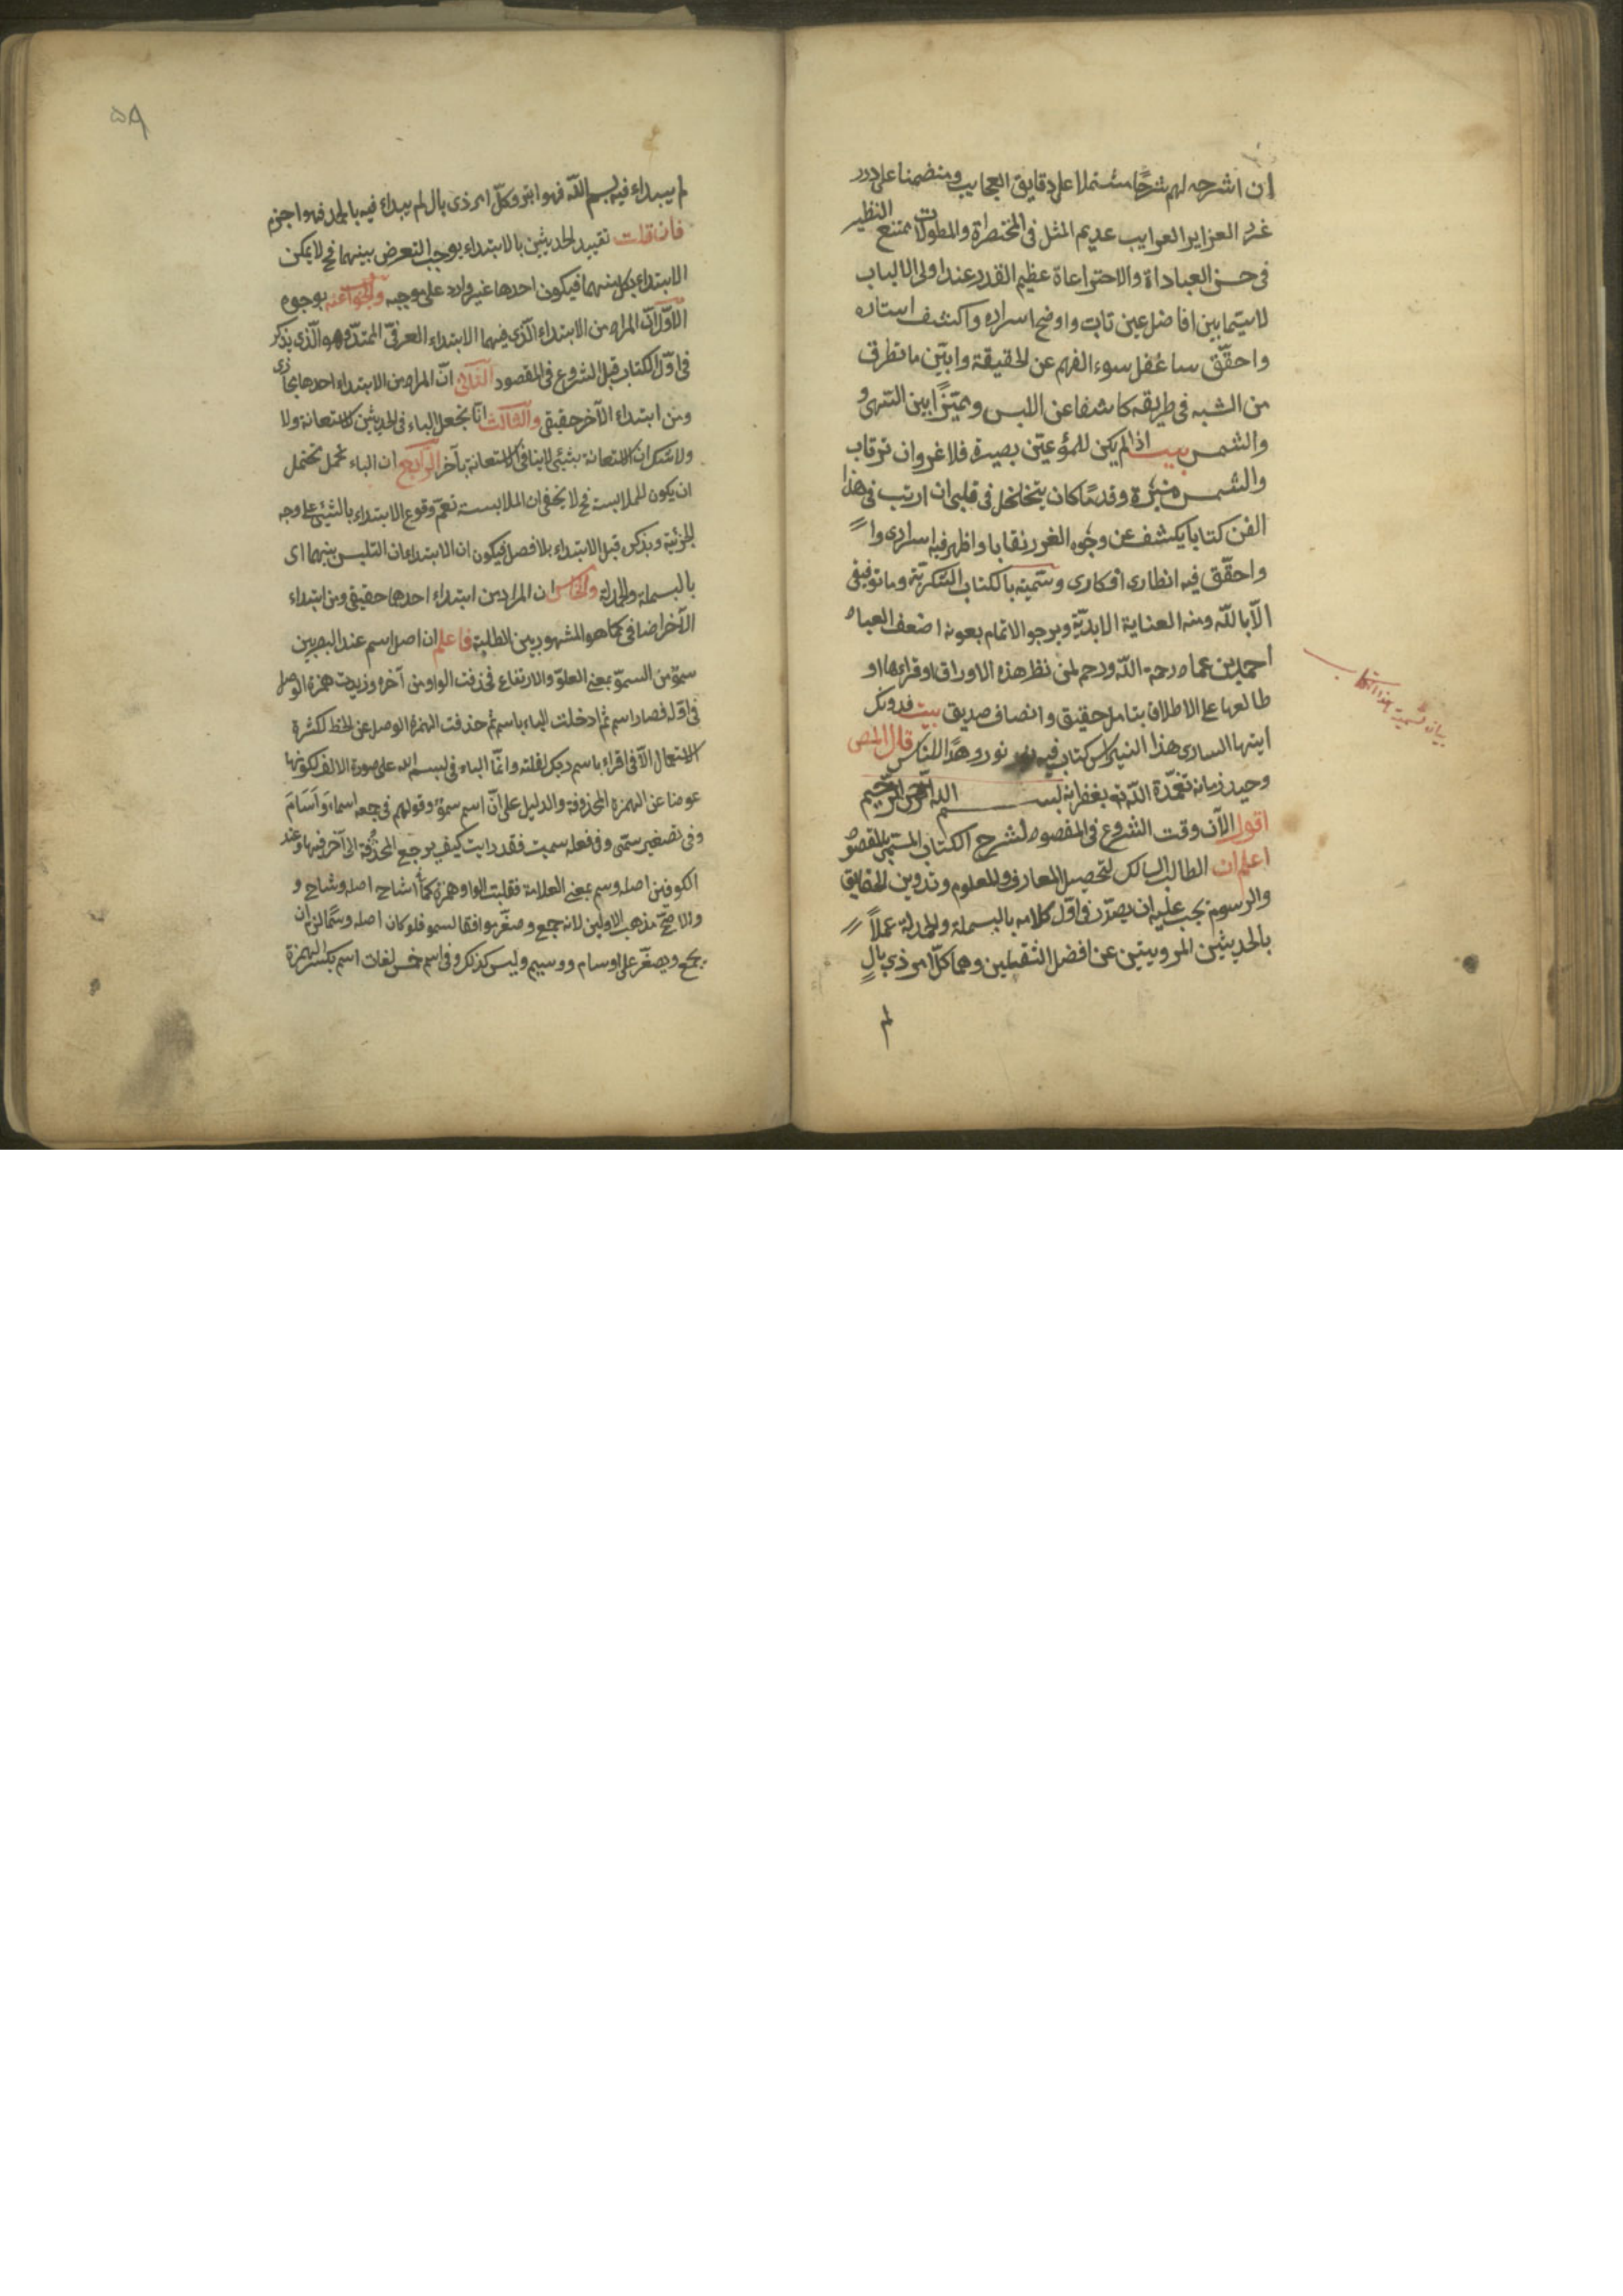 ان اشرحه لهم شرحًا مشتملا على دقايق العجايب ومنضمنا على درر
غرر العزاير الغرايب عديم المثل فى المختصراة والمطولات ممتنع النظير
فى حسن العباداة والاحتراعاة عظيم القدر عند اولى الالباب
لاسيما بين افاضل عين تاب واوضح اسراره واكشف استاره
واحقّق ساعُفل سوء الفهم عن الحقيقة وابيّن ما تطرق
من الشبه فى طريقه كاشفا عن اللبس ومميّزًا بين الثرى و
والشمس بيت اذا لم يكن للمرؤ عين بصيرة فلا غرو ان ترتاب
والشمس منيرة وقد مًا كان يتخلخل فى قلبى ان ارتب فى هذا
الفن كتابا يكشف عن وجوه الغرر نقابا واظهر فيه اسرارى وا
واحقّق فيه انظارى افكارى وسمّيته بالكتاب الشكريّة وما توفيقى
الّا بالله ومنه العناية الابديّة ويرجو الاتمام بعونه اضعف العباد
احمد بن عماد رحمه اللّه ورحم لمن نظر هذه الاوراق او قراءها او
طالعها على الاطلاق بتامل حقيق وانصاف صديق بيت فدونك
ايتها السارى هذا النبراس كتاب فيه نور وهدًا للناس قال المص
وحيد زمانه تغمّدة اللّه ته بغفرانه بسم الله الرّحمن الرّحيم
اقول الآن وقت الشروع فى المقصود لشرح الكتاب المسمّى بالمقصود
اعلم ان الطالب السالك لتحصيل المعارف والمعلوم وتدوين الحقايق
والرسوم يجب عليه ان يصدّر فى اوّل كلامه بالبسملة والحمدلة عملاً
بالحديثين المرويتين عن افضل الثقيلين وهما كلّ امر ذى بالٍ
لم
بيان تسمية هذا الكتاب
٥٩
لم يبداء فيه بسم اللّه فهو ابتر وكلّ امر ذى بال لم يبداء فيه بالحمد فهو اجزم
فان قلت تقييد الحديثين بالابتداء يوجب التعرض بينهما فح لا يمكن
الابتداء بكل منهما فيكون احدهما غير وارد على موجبه والجواب عنه بوجوه
الاوّل انّ المراد من الابتداء الّذى فيهما الابتداء العرفىّ الممتدّ وهو الّذى يذكر
فى اوّل الكتاب قبل الشروع فى المقصود الثانى انّ المراد من الابتداء احدهما مجازى
ومن ابتداء الآخر حقيقى والثالث انّا نجعل الباء فى الحديثين للاستعانة ولا
ولا شك ان الاستعانة بشئى لا ينافى الاستعانة بآخر الرابع ان الباء يحتمل
ان يكون للملابسة فح لا يخفى ان الملابسة تعمّ وقوع الابتداء بالشئى على وجه
الجزئية وبذكره قبل الابتداء بلا فصل فيكون ان الابتداء ان التلبس بينهما اى
بالبسملة والحمدلة والخامس ان المراد من ابتداء احدهما حقيقى ومن ابتداء
الآخر اضافى كما هو المشهور بين الطلبة فاعلم ان اصل اسم عند البصريين
سموّ من السموّ بمعنى العلوّ والارتفاع فحذفت الواو من آخره وزيدت همزة الوصل
فى اوّله فصار اسم ثمّ ادخلت الباء باسم ثم حذفت الهمزة الوصل عن الخط لكثرة
الاستعمال الّا فى اقراء باسم ربك لقلته وانّما الباء فى بسم الله على صورة الالف لكونها
عوضا عن الهمزة المحذوفة والدليل على انّ اسم سموٌ وقولهم فى جمعه اسماء وَاَسَامَ
وفى تصغير سمّى وفى فعله سميت فقد رايت كيف يرجع المحذُوفة الى آخر فيها وعند
الكوفيّن اصله وسم بمعنى العلامة فقلبت الواو همزة كما اشاح اصله وشاح و
والاصحّ مذهب الاولين لانه جمع وصغّر موافقا لسمو فلو كان اصله وسمًا لزم ان
يجمع ويصغّر على اوسام ووسيم وليس كذلك وفى اسم خمس لغات اسم بكسر الهمزة